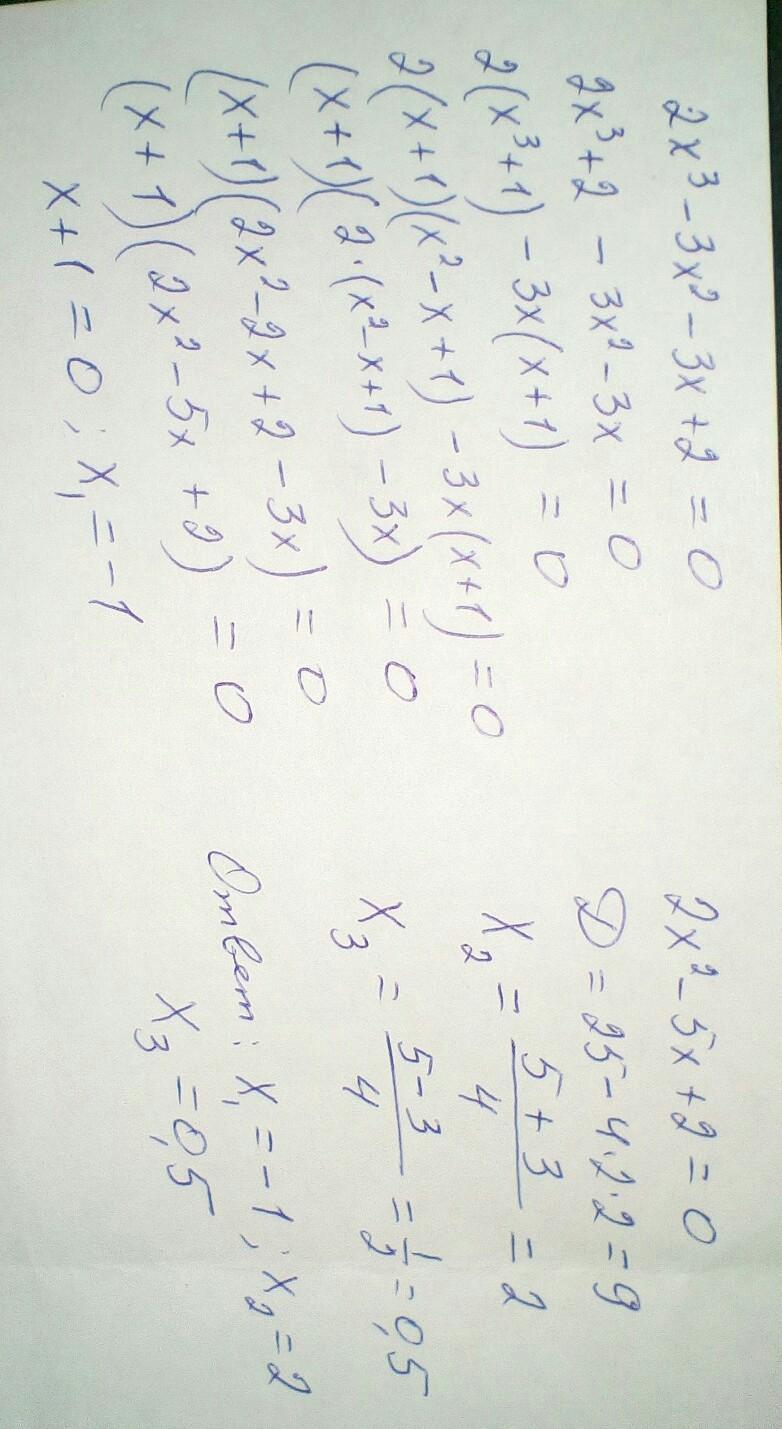 2x³ - 3x² - 3x + 2 = 0
2x³ + 2 - 3x² - 3x = 0
2(x³ + 1) - 3x(x + 1) = 0
2(x + 1)(x² - x + 1) - 3x(x + 1) = 0
(x + 1)(2·(x² - x + 1) - 3x) = 0
(x + 1)(2x² - 2x + 2 - 3x) = 0
(x + 1)(2x² - 5x + 2) = 0
x + 1 = 0; x₁ = -1
2x² - 5x + 2 = 0
D = 25 - 4·2·2 = 9
x₂ = (5 + 3)/4 = 2
x₃ = (5 - 3)/4 = 1/2 = 0,5
Ответ: x₁ = -1; x₂ = 2
x₃ = 0,5